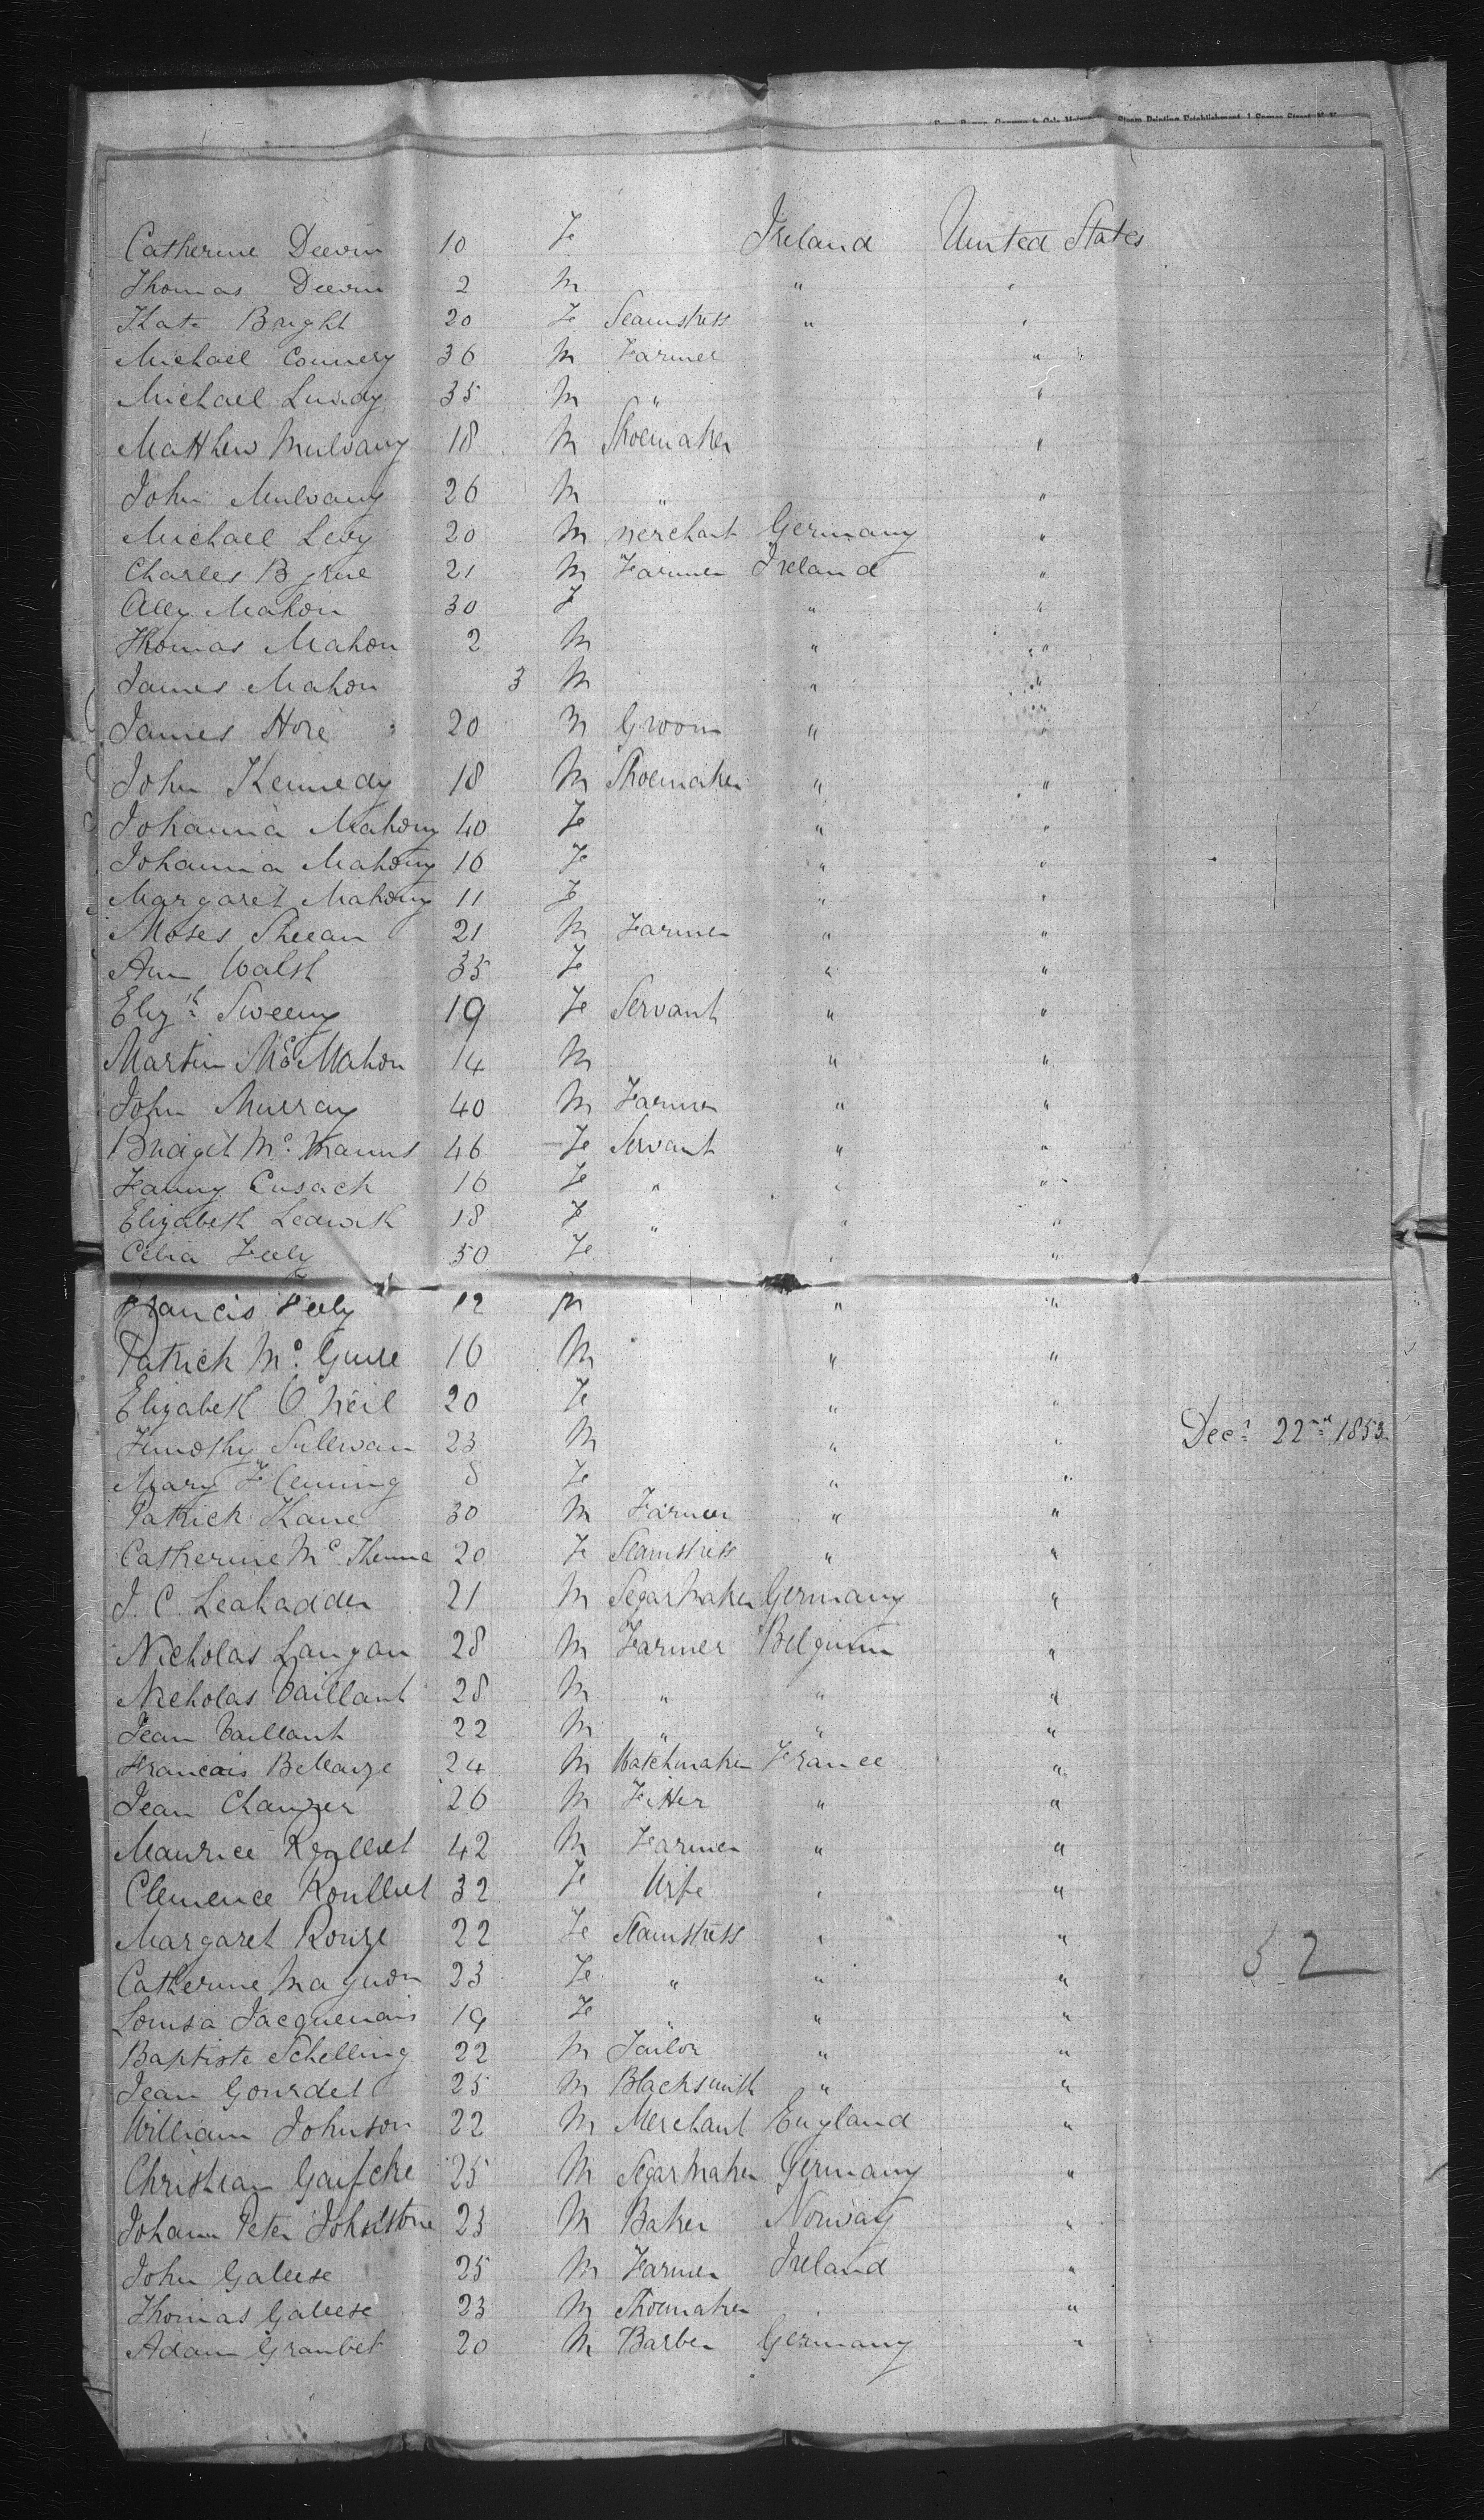 Catherine Deevin 10 Fe Ireland United States
Thomas Deevin 2 M " "
Kate Bright 20 Fe Seamstress " "
Michael Connery 36 M Farmer "
Michael Lundy 35 M " "
Matthew Mulvany 18 M Shoemaker "
John Mulvany 26 M " "
Michael Levy 20 M Merchant Germany "
Charles Byrne 21 M Farmer Ireland "
Ally Mahon 30 F " "
Thomas Mahon 2 M " "
James Mahon 3 M " "
James Hore 20 M Groom " "
John Kennedy 18 M Shoemaker " "
Johanna Mahony 40 Fe " "
Johanna Mahony 16 Fe " "
Margaret Mahony 11 F " "
Moses Sheean 21 M Farmer " "
Ann Walsh 35 Fe " "
Elizth Sweeny 19 Fe Servant " "
Martin McMahon 14 M " "
John Murray 40 M Farmer " "
Bridget Mc. Manus 46 Fe Servant " "
Fanny Cusack 16 Fe " " "
Elizabeth Ledwith 18 F " " "
Celia Feely 50 Fe " "
Francis Feely 12 M " "
Patrick Mc. Guire 16 M " "
Elizabeth O'Neil 20 Fe " "
Timothy Sullivan 23 M " " Decr 22nd 1853
Mary Fleming 8 Fe " "
Patrick Kane 30 M Farmer " "
Catherine Mc. 20 Fe Seamstress " "
J. C. Leahadder 21 M Segar Maker Germany "
Nicholas Langan 28 M Farmer Belgium "
Nicholas Vaillant 28 M " " "
Jean Vaillant 22 M " " "
Francois 24 M Watchmaker France "
Jean 26 M Fitter " "
Maurice Roulliet 42 M Farmer " "
Clemence Roulliet 32 Fe Wife " "
Margaret Rouze 22 Fe Seamstress " "
Catherine Magnon 23 Fe " " " 52
Louisa Jacquemais 19 Fe " " "
Baptiste Schelling 22 M Tailor " "
Jean Gourdet 25 M Blacksmith " "
William Johnson 22 M Merchant England "
Christian Gaifcke 25 M Segar Maker Germany "
Johann Peter Johnstone 23 M Baker Norway "
John Galeese 25 M Farmer Ireland "
Thomas Galeese 23 M Shoemaker " "
Adam Graubet 20 M Barber Germany "